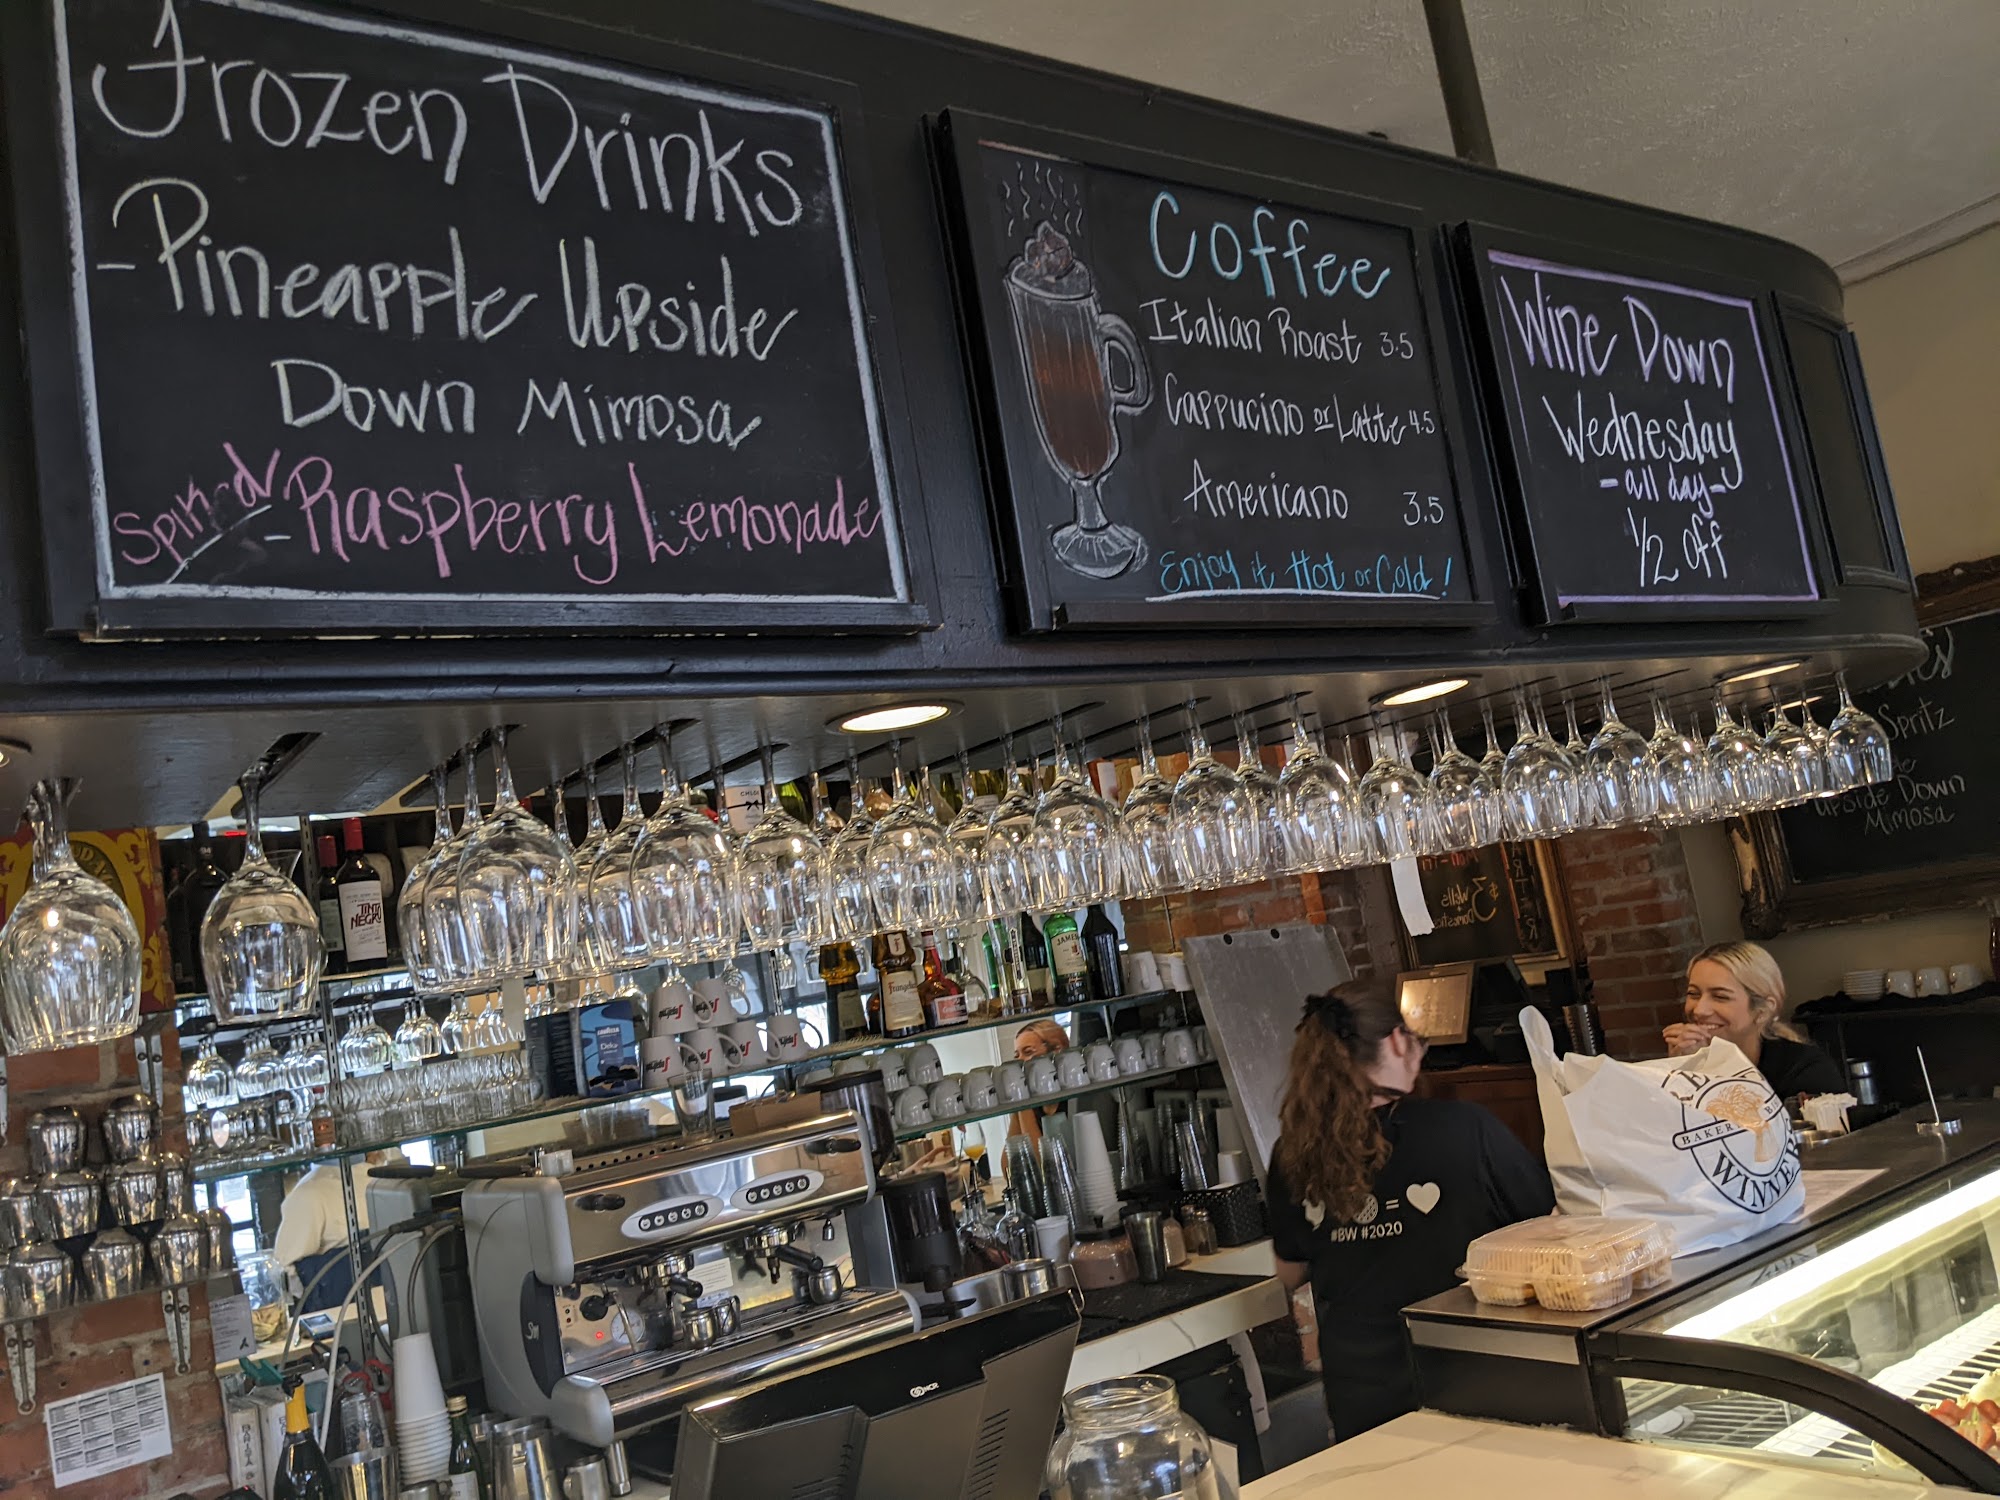 Frozen Drinks
- Pineapple Upside
Down Mimosa
Spiked - Raspberry Lemonade
Coffee
Italian Roast 3.5
Cappucino or Latte 4.5
Americano 3.5
Enjoy it Hot or Cold!
Wine Down
Wednesday
- all day -
1/2 off
Spritz
Upside Down
Mimosa
$3 Wells
Domestics
TINTO
NEGRO
JAMES
Frangelico
LAVAZZA
Dek
SM
NCR
=
#BW #2020
BAKER
WINNER